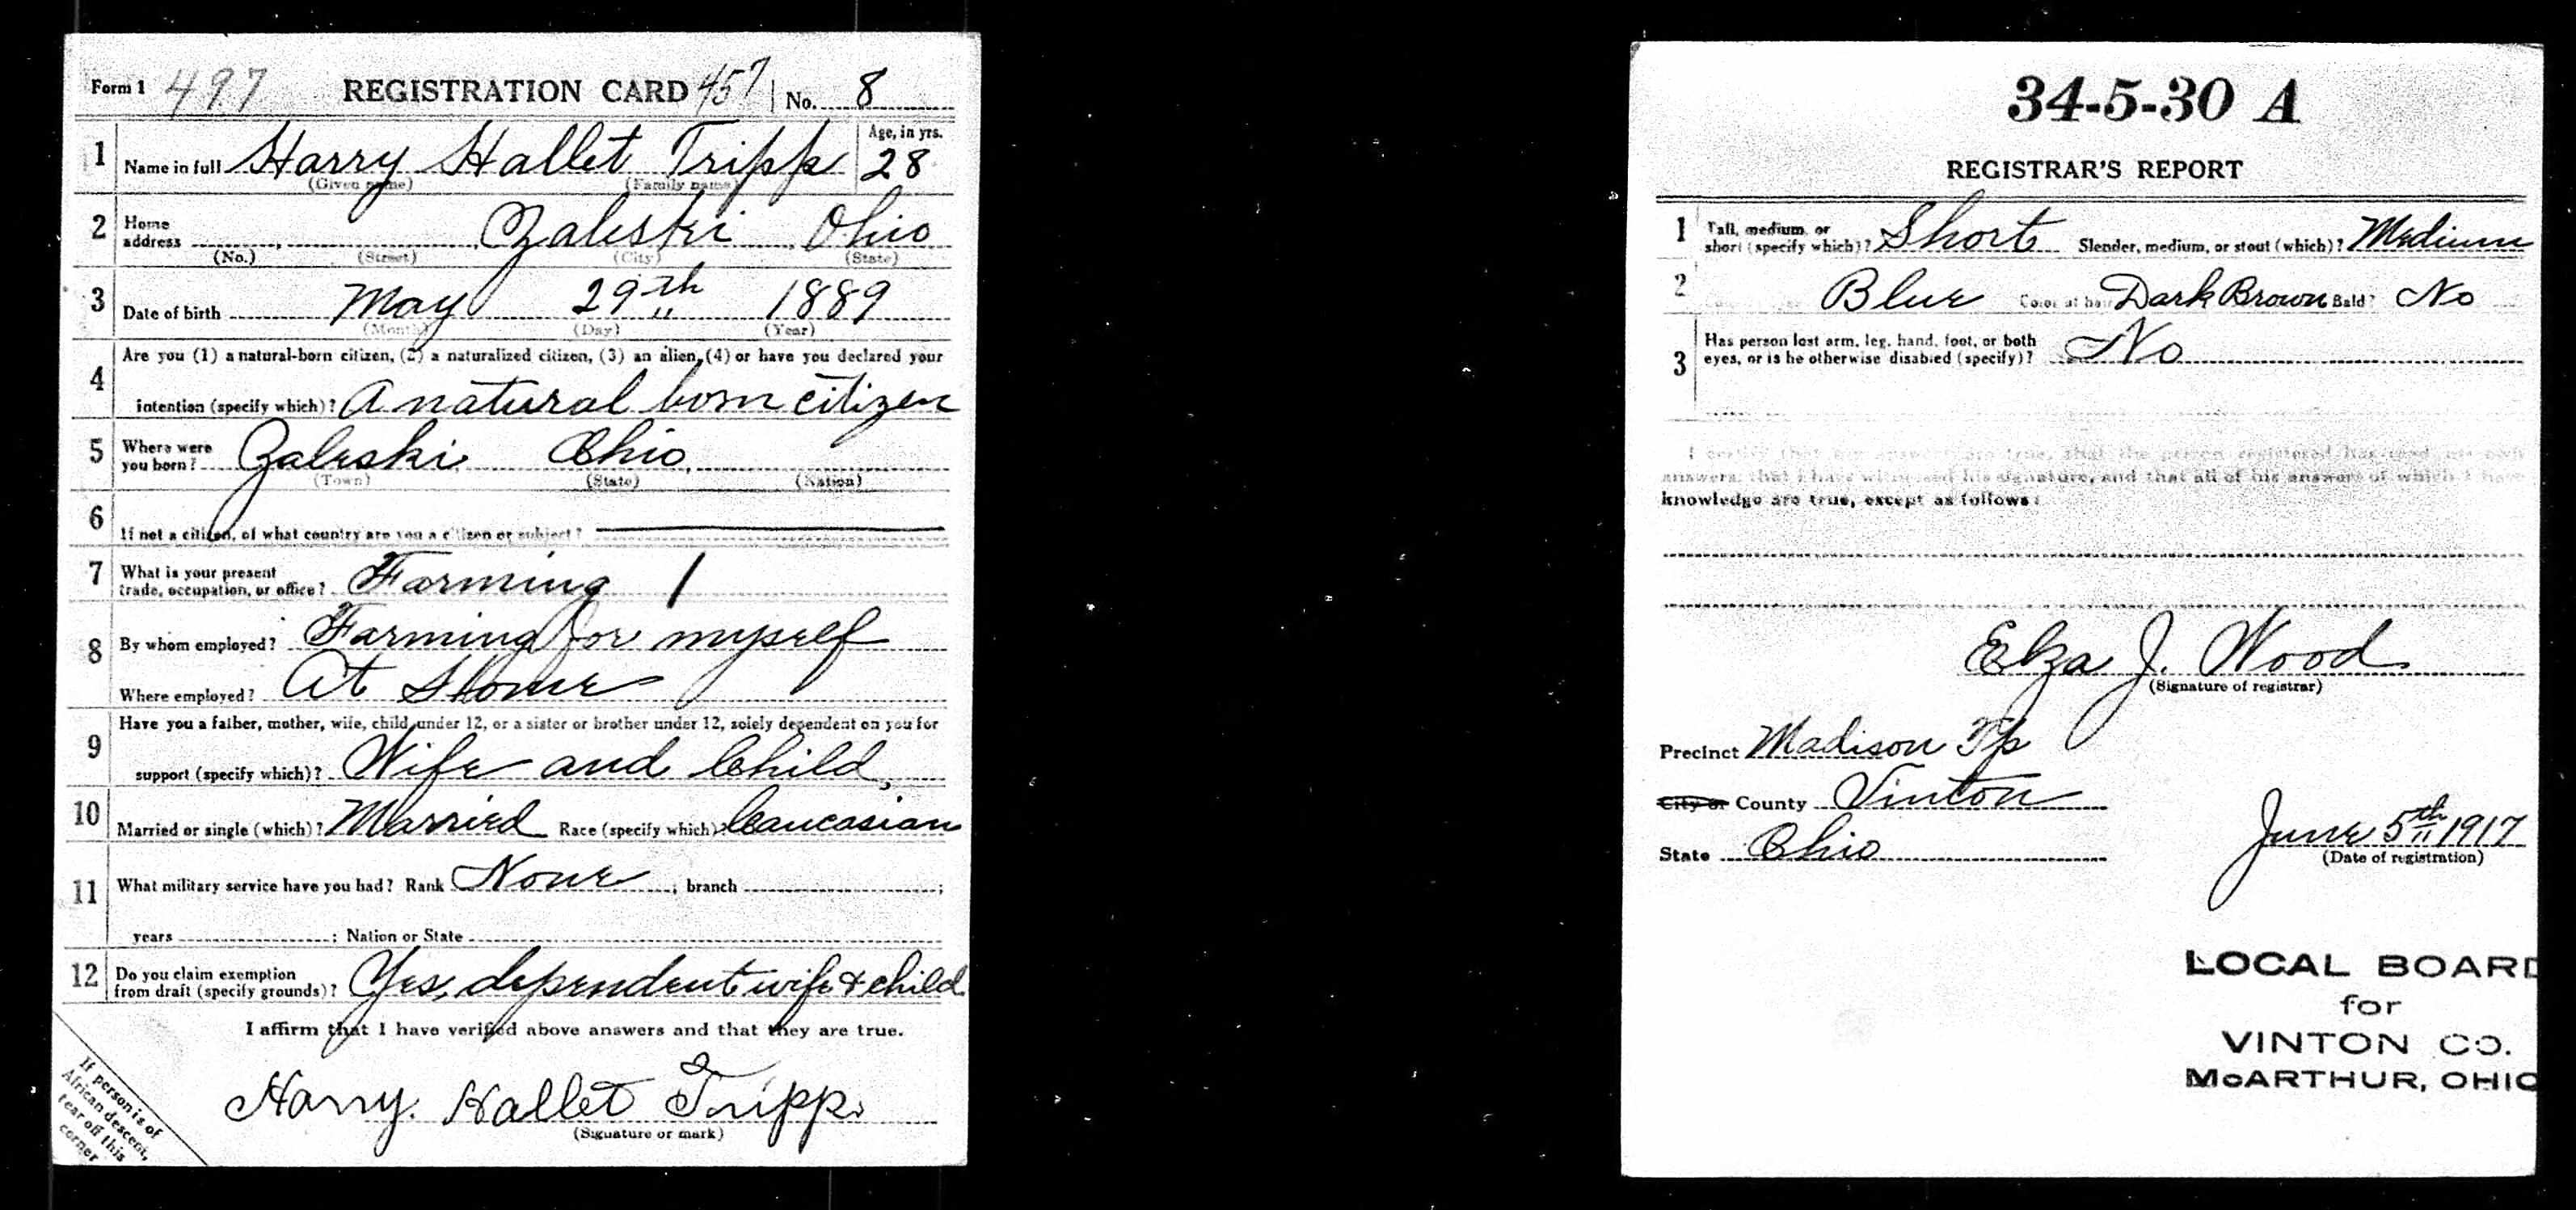 Form 1 497 REGISTRATION CARD 457 No. 8
1 Name in full Harry Hallet Tripp Age, in yrs. 28
(Given name) (Family name)
2 Home address Zaleski Ohio
(No.) (Street) (City) (State)
3 Date of birth May 29th 1889
(Month) (Day) (Year)
4 Are you (1) a natural-born citizen, (2) a naturalized citizen, (3) an alien, (4) or have you declared your
intention (specify which)? A natural born citizen
5 Where were you born? Zaleski Ohio
(Town) (State) (Nation)
6 If not a citizen, of what country are you a citizen or subject?
7 What is your present trade, occupation, or office? Farming /
8 By whom employed? Farming for myself
Where employed? At Home
9 Have you a father, mother, wife, child under 12, or a sister or brother under 12, solely dependent on you for
support (specify which)? Wife and Child,
10 Married or single (which)? Married Race (specify which)? Caucasian
11 What military service have you had? Rank None ; branch ;
years ; Nation or State
12 Do you claim exemption from draft (specify grounds)? Yes, dependent wife & child
I affirm that I have verified above answers and that they are true.
Harry. Hallet Tripp.
(Signature or mark)
If person is of
African descent,
tear off this
corner
34-5-30 A
REGISTRAR'S REPORT
1 Tall, medium, or short (specify which)? Short Slender, medium, or stout (which)? Medium
2 Blue Color of hair Dark Brown Bald? No
3 Has person lost arm, leg, hand, foot, or both
eyes, or is he otherwise disabled (specify)? No
I certify that my answers are true, that the person registered has read his own
answers, that I have witnessed his signature, and that all of his answers of which I have
knowledge are true, except as follows:
Elza J. Wood
(Signature of registrar)
Precinct Madison Tp
City or County Vinton
State Ohio
June 5th 1917
(Date of registration)
LOCAL BOARD
for
VINTON CO.
McARTHUR, OHIO